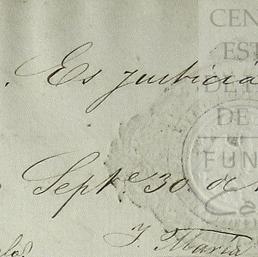 CEN
EST
DE
DE
FUN
Es justicia
Septe 30 de
J. María